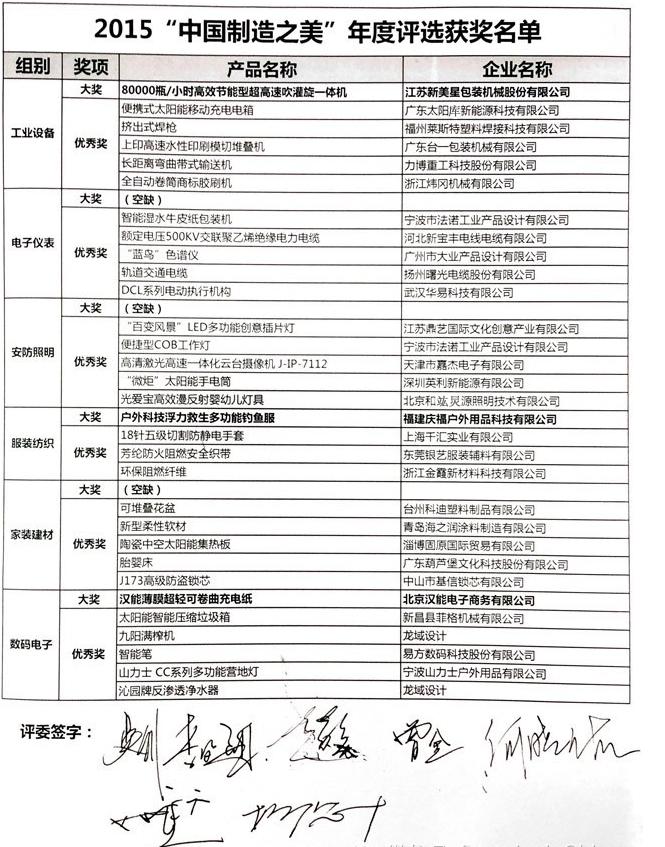 2015“中国制造之美”年度评选获奖名单
组别 奖项 产品名称 企业名称
大奖 80000瓶/小时高效节能型超高速吹灌旋一体机 江苏新美星包装机械股份有限公司
便携式太阳能移动充电电箱 广东太阳库新能源科技有限公司
挤出式焊枪 福州莱斯特塑料焊接科技有限公司
工业设备 优秀奖 上印高速水性印刷模切堆叠机 广东台一包装机械有限公司
长距离弯曲带式输送机 力博重工科技股份有限公司
全自动卷筒商标胶刷机 浙江炜冈机械有限公司
大奖 (空缺)
智能湿水牛皮纸包装机 宁波市法诺工业产品设计有限公司
额定电压500KV交联聚乙烯绝缘电力电缆 河北新宝丰电线电缆有限公司
电子仪表 优秀奖 “蓝鸟”色谱仪 广州市大业产品设计有限公司
轨道交通电缆 扬州曙光电缆股份有限公司
DCL系列电动执行机构 武汉华易科技有限公司
大奖 (空缺)
“百变风景”LED多功能创意插片灯 江苏鼎艺国际文化创意产业有限公司
便捷型COB工作灯 宁波市法诺工业产品设计有限公司
安防照明 优秀奖 高清激光高速一体化云台摄像机 J-IP-7112 天津市嘉杰电子有限公司
“微炬”太阳能手电筒 深圳英利新能源有限公司
光爱宝高效漫反射婴幼儿灯具 北京和竑炅源照明技术有限公司
大奖 户外科技浮力救生多功能钓鱼服 福建庆福户外用品科技有限公司
18针五级切割防静电手套 上海干汇实业有限公司
服装纺织 优秀奖 芳纶防火阻燃安全织带 东莞银艺服装辅料有限公司
环保阻燃纤维 浙江金霞新材料科技有限公司
大奖 (空缺)
可堆叠花盆 台州科迪塑料制品有限公司
新型柔性软材 青岛海之润涂料制造有限公司
家装建材 优秀奖 陶瓷中空太阳能集热板 淄博固原国际贸易有限公司
胎婴床 广东葫芦堡文化科技股份有限公司
J173高级防盗锁芯 中山市基信锁芯有限公司
大奖 汉能薄膜超轻可卷曲充电纸 北京汉能电子商务有限公司
太阳能智能压缩垃圾箱 新昌县菲格机械有限公司
九阳满榨机 龙域设计
数码电子 优秀奖 智能笔 易方数码科技股份有限公司
山力士 CC系列多功能营地灯 宁波山力士户外用品有限公司
沁园牌反渗透净水器 龙域设计
评委签字：